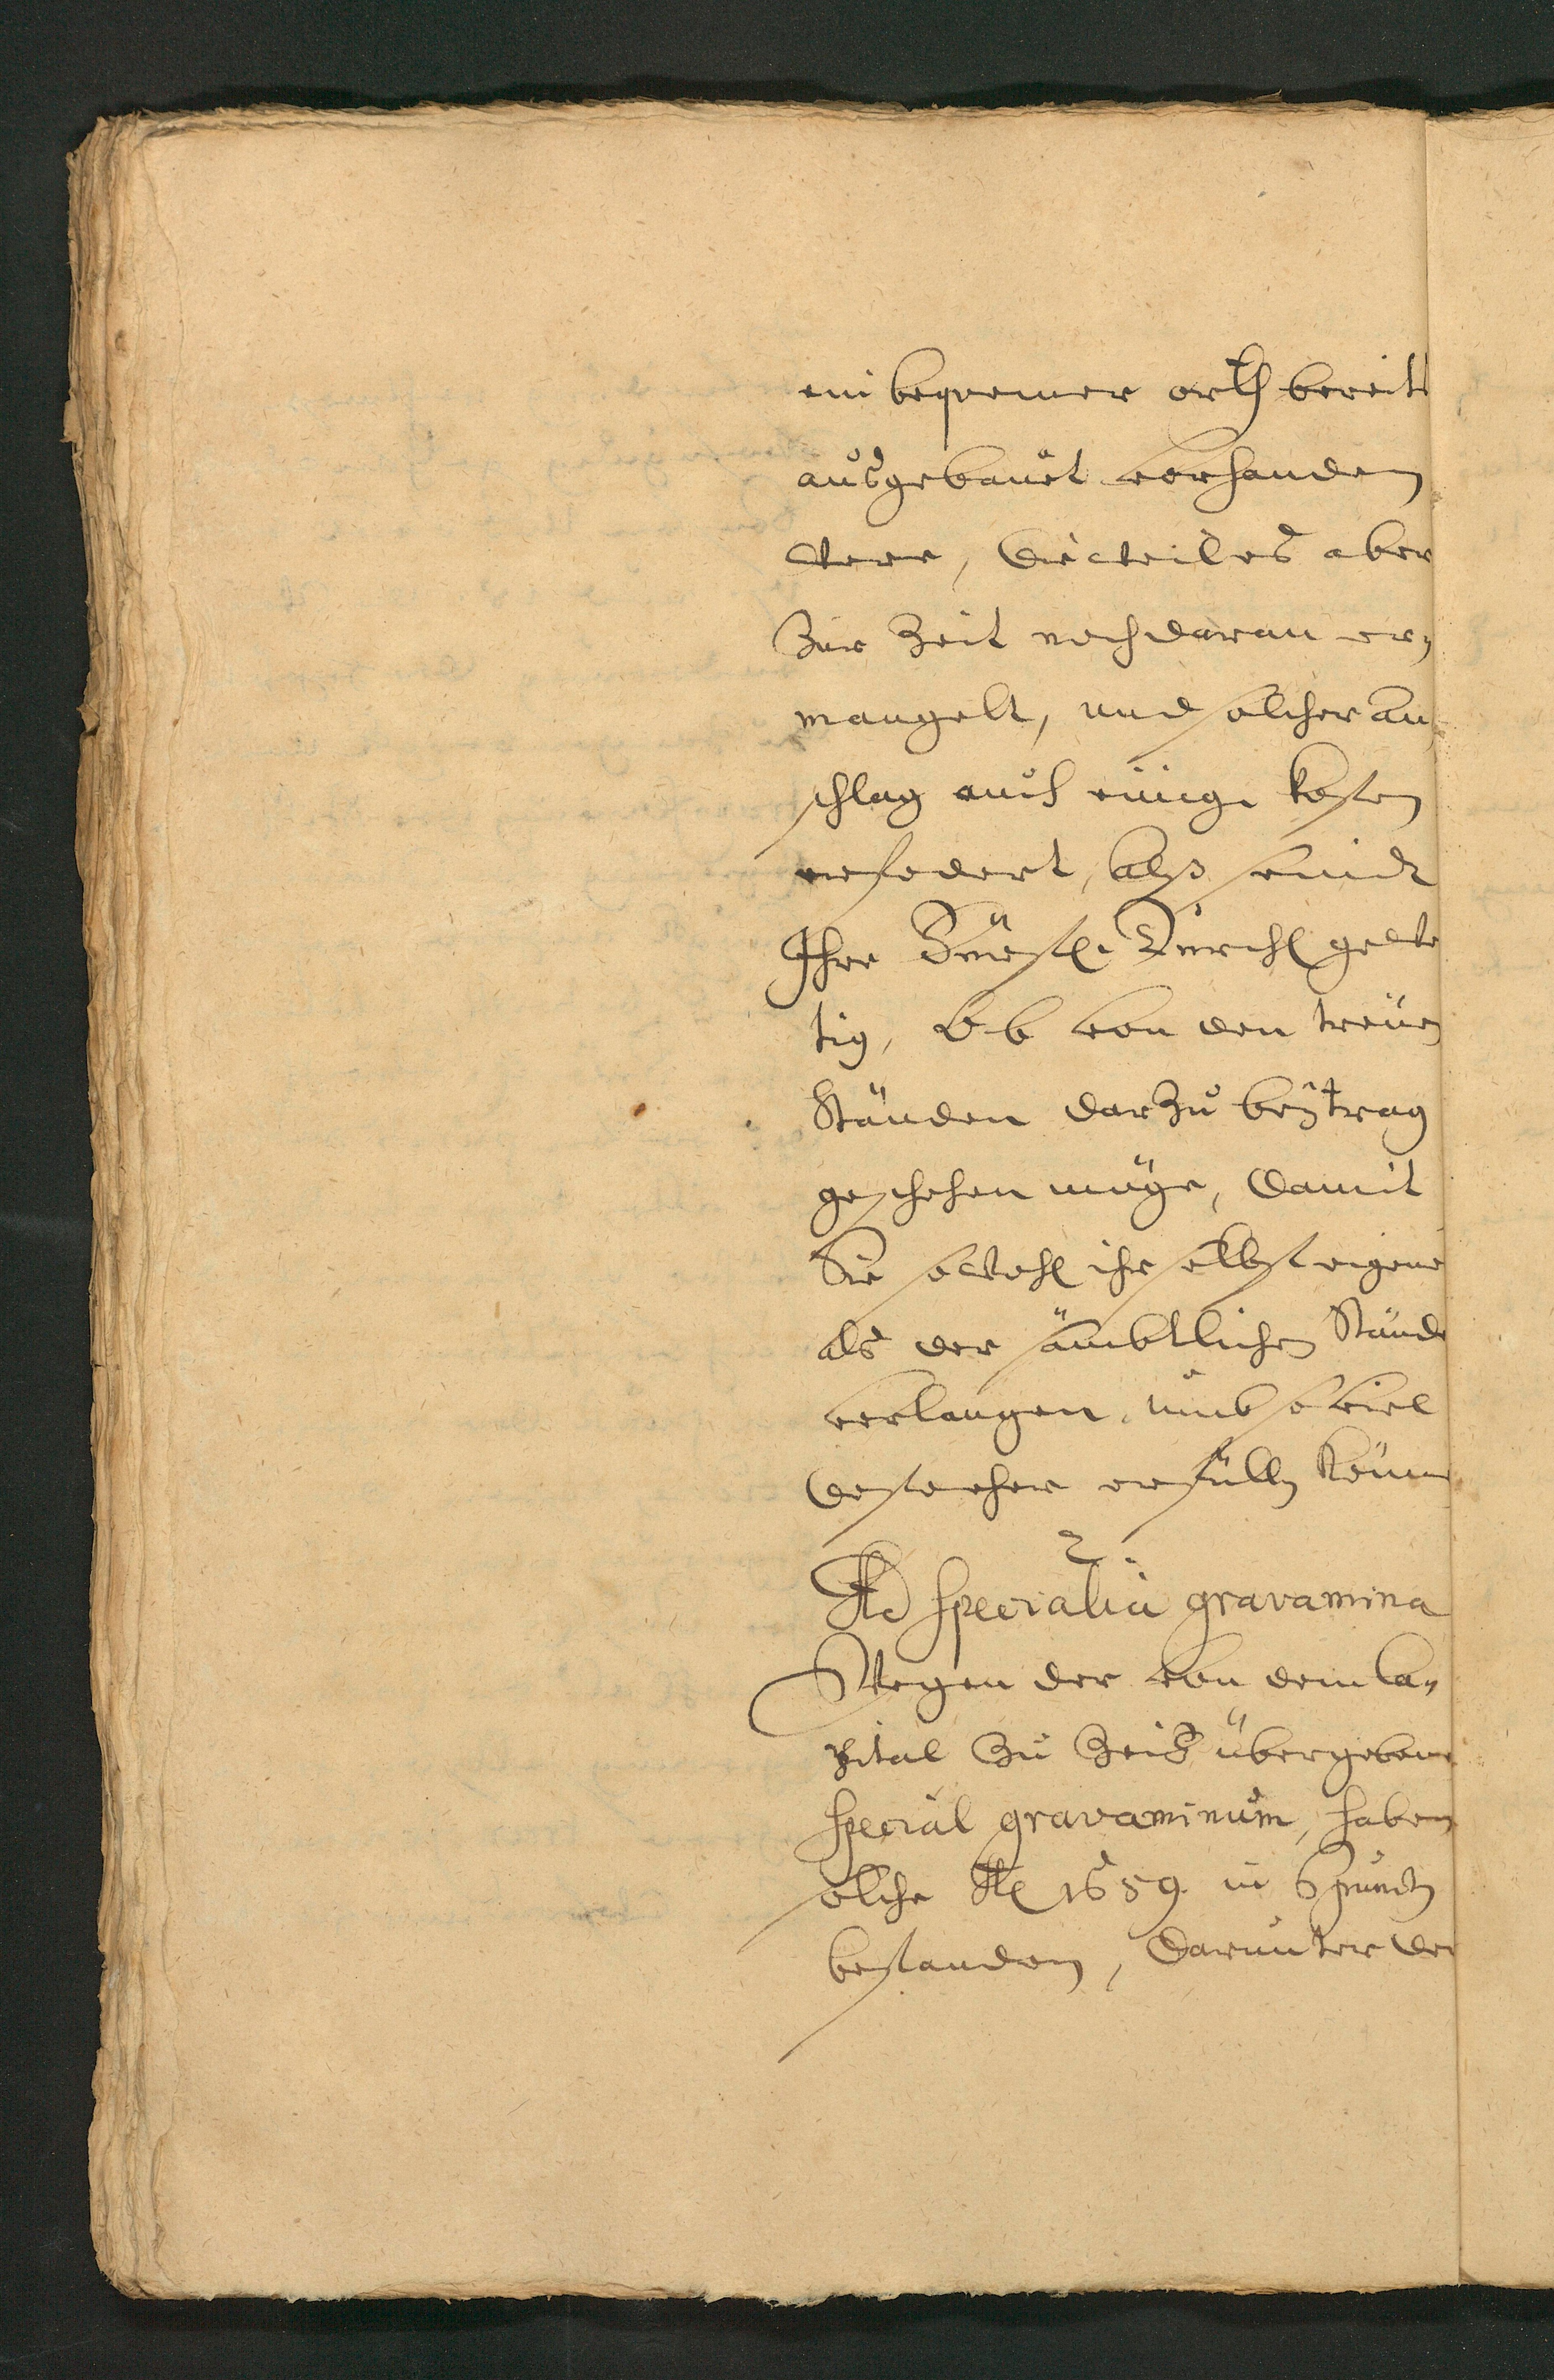 ein bequemer orth bereits
ausgebauet vorhanden
were, Dieweil es aber
Zur Zeit noch daran er„
mangelt, und solcher an„
schlag auch einige kosten
erfodert, alß seind
Ihre Fürstl. Durchl gewer
tig, Ob von den treuen
Ständen darzu beytrag
geschehen möge, Damit
Sie sowohl ihr selbst eigene
als der sämbtlichen Stände
verlangen, umb so viel
desto eher erfüllen können
2.
Ad specialia gravamina
Wegen der von dem Ca„
pital Zu Zeitz übergebene
special gravaminum, haben
solche Ao 1659. in 6 puncten
bestanden, Darunter der